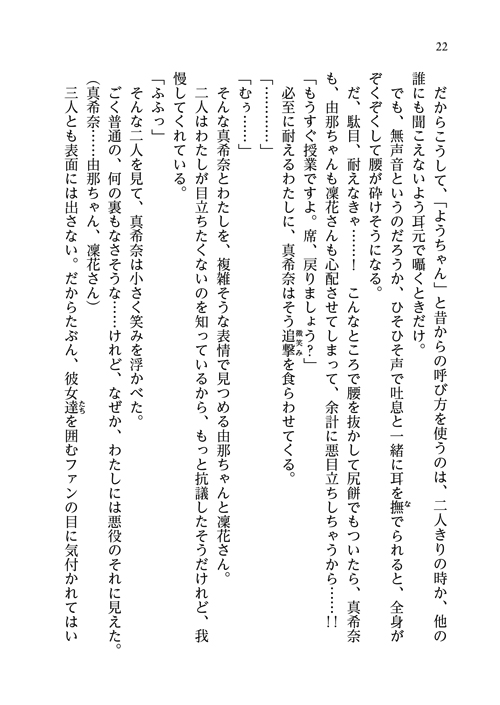 22
だからこうして、「ようちゃん」と昔からの呼び方を使うのは、二人きりの時か、他の
誰にも聞こえないよう耳元で囁くときだけ。
でも、無声音というのだろうか、ひそひそ声で吐息と一緒に耳を撫でられると、全身が
な
ぞくぞくして腰が砕けそうになる。
だ、駄目、耐えなきゃ……！　こんなところで腰を抜かして尻餅でもついたら、真希奈
も、由那ちゃんも凜花さんも心配させてしまって、余計に悪目立ちしちゃうから……!!
「もうすぐ授業ですよ。席、戻りましょう？」
必至に耐えるわたしに、真希奈はそう追撃を食らわせてくる。
微笑み
「…………」
「むぅ……」
そんな真希奈とわたしを、複雑そうな表情で見つめる由那ちゃんと凜花さん。
二人はわたしが目立ちたくないのを知っているから、もっと抗議したそうだけれど、我
慢してくれている。
「ふふっ」
そんな二人を見て、真希奈は小さく笑みを浮かべた。
ごく普通の、何の裏もなさそうな……けれど、なぜか、わたしには悪役のそれに見えた。
（真希奈……由那ちゃん、凜花さん）
三人とも表面には出さない。だからたぶん、彼女達を囲むファンの目に気付かれてはい
たち